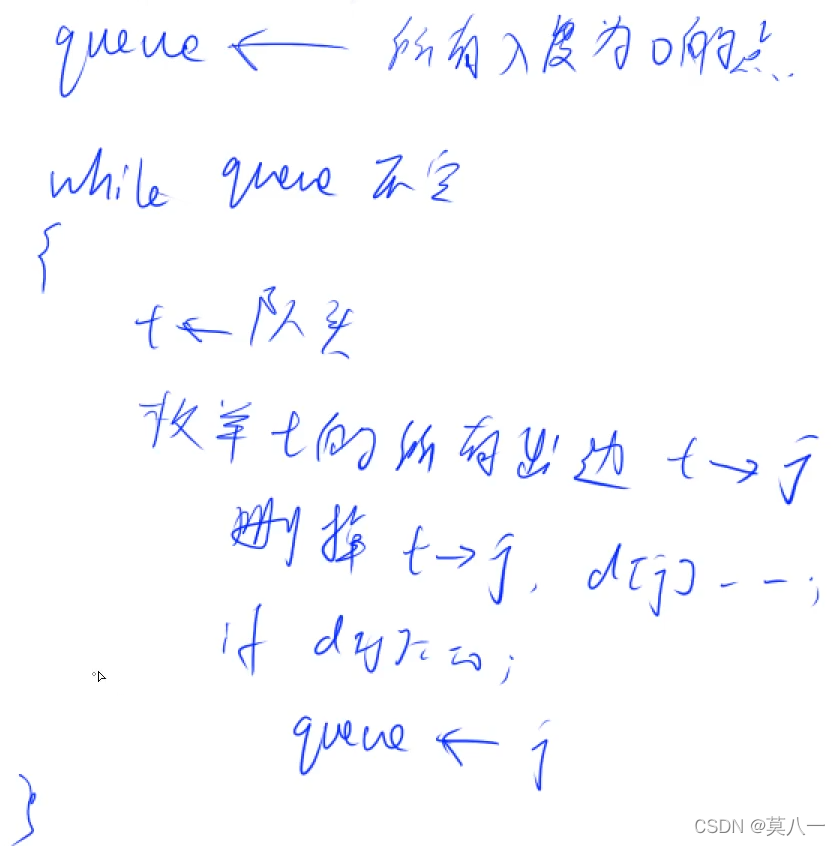 queue ← 所有入度为0的点
while queue 不空
{
t ← 队头
枚举 t 的所有出边 t → j
删掉 t → j, d[j]--;
if d[j] == 0;
queue ← j
}
CSDN @莫八一